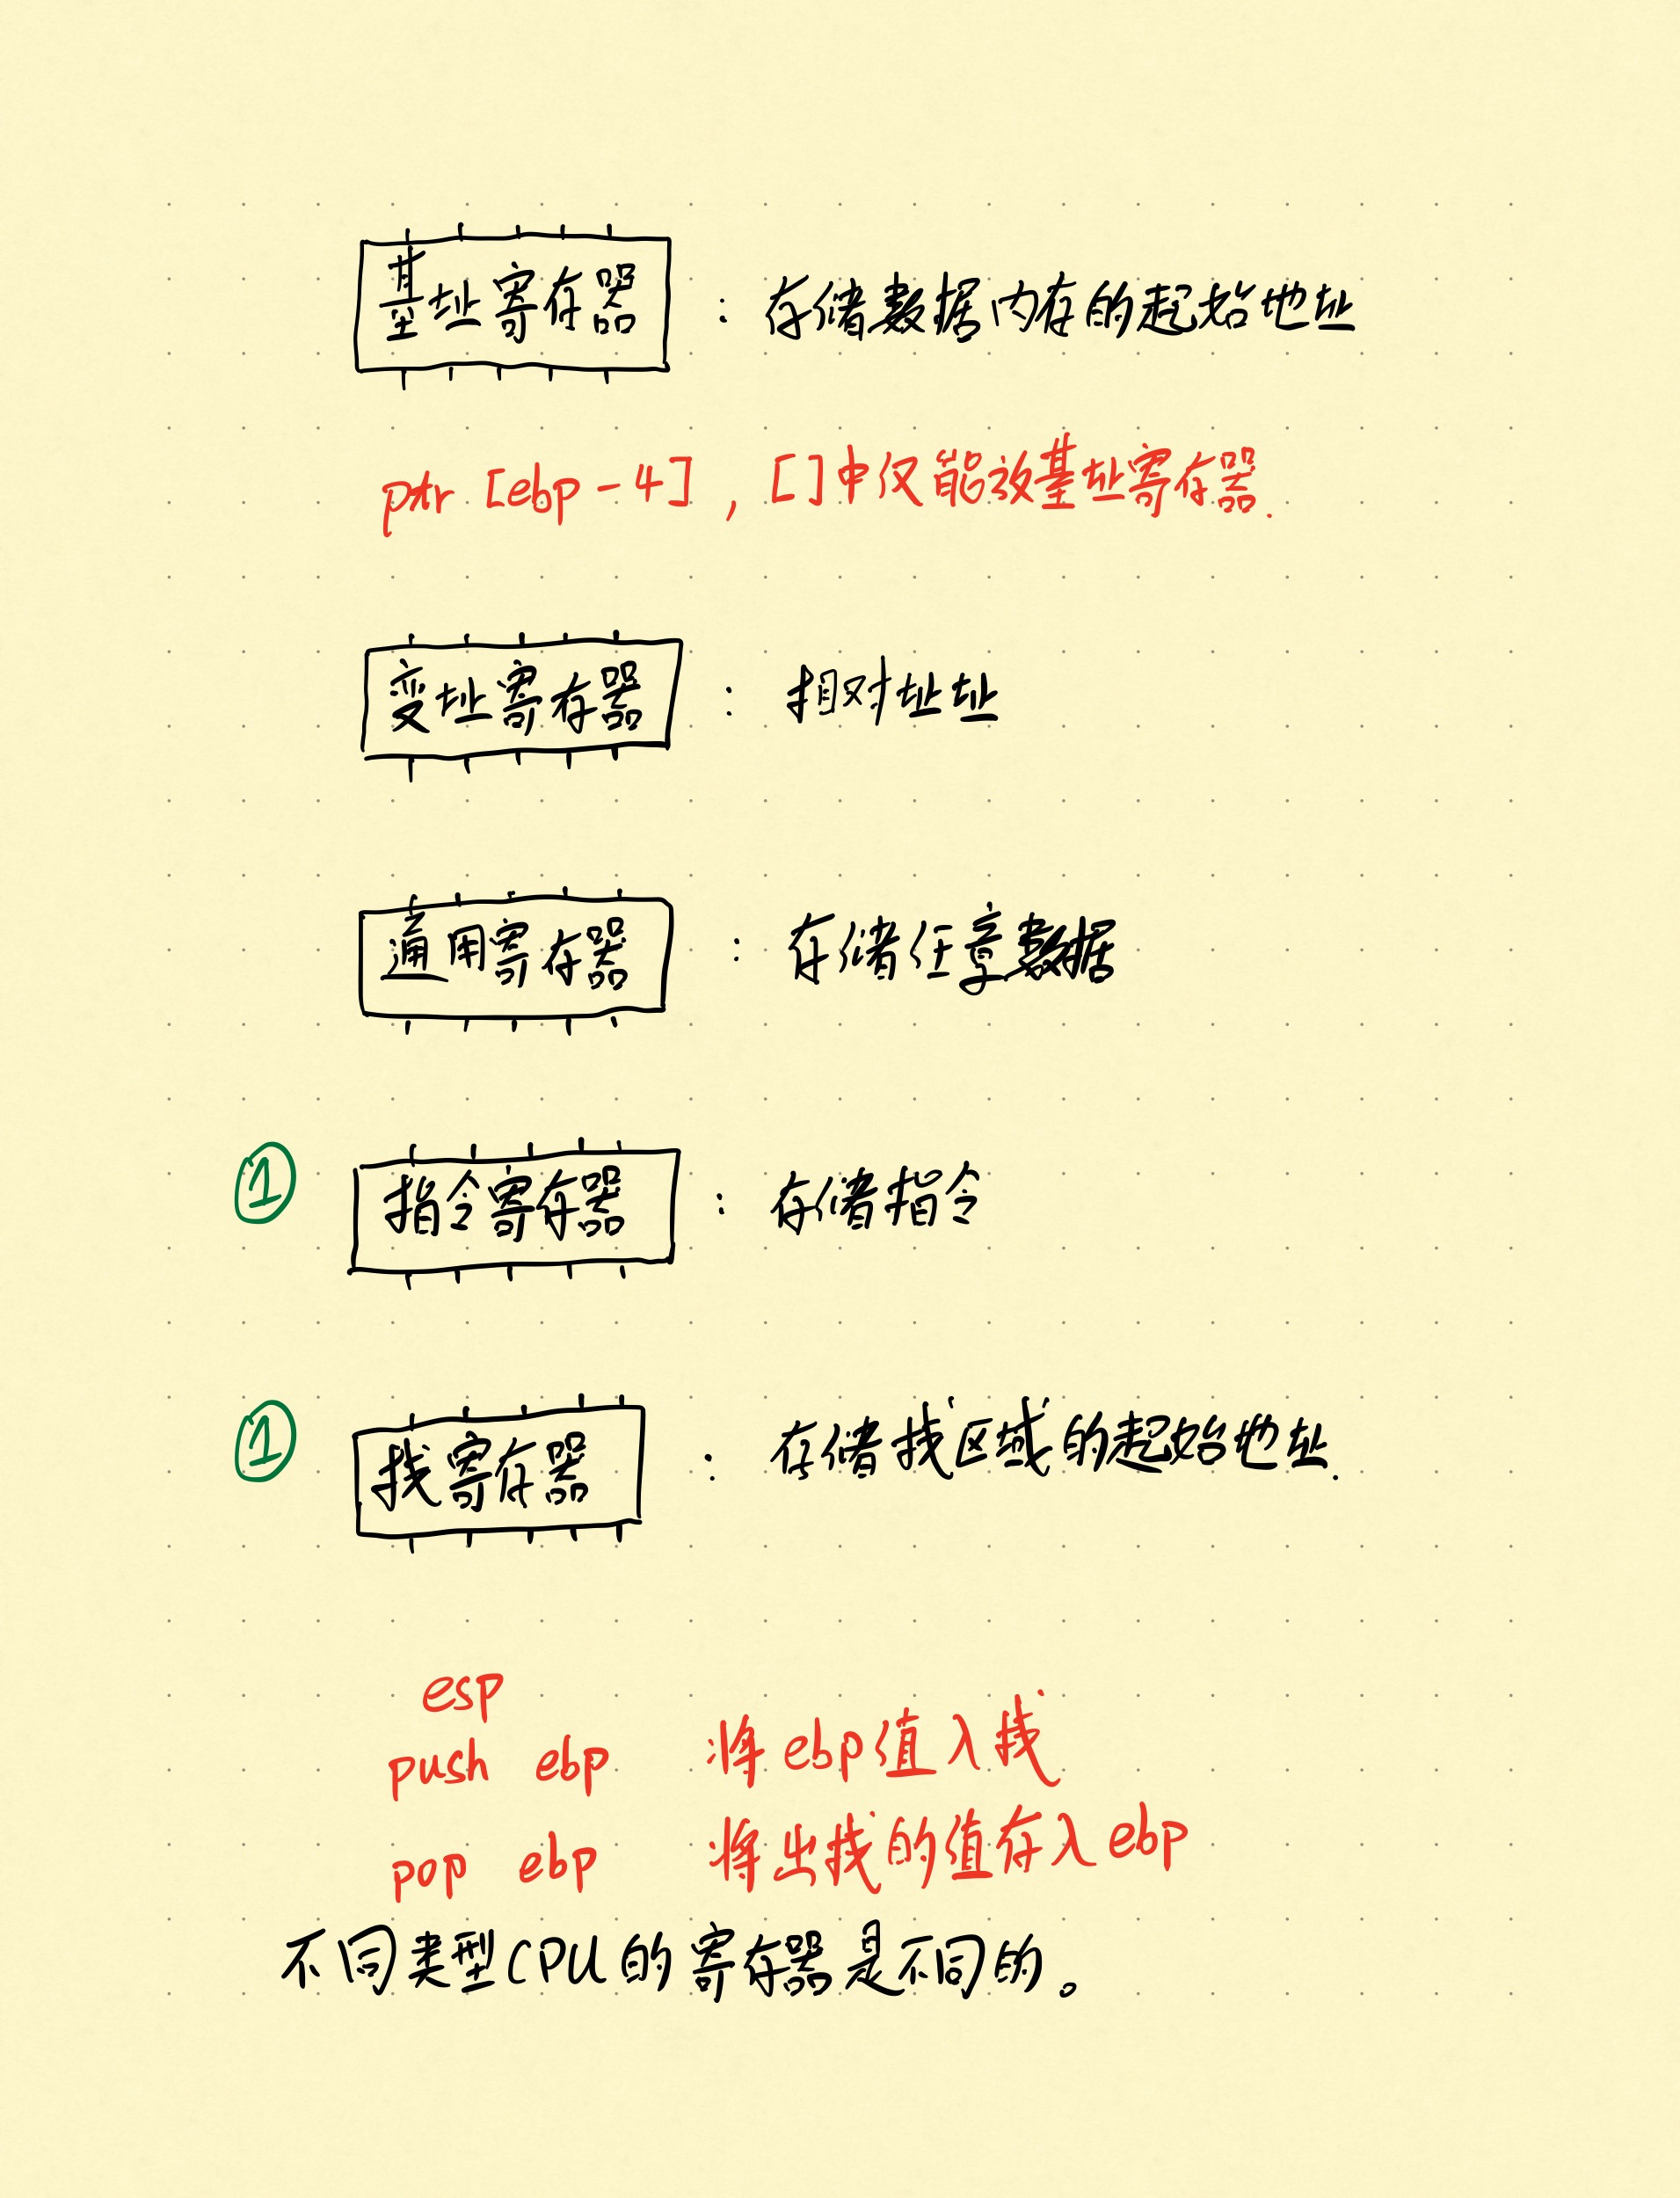 基址寄存器 : 存储数据内存的起始地址
ptr [ebp-4], []中仅能放基址寄存器.
变址寄存器 : 相对址址
通用寄存器 : 存储任意数据
① 指令寄存器 : 存储指令
① 栈寄存器 : 存储栈区域的起始地址.
esp
push ebp 将ebp值入栈
pop ebp 将出栈的值存入ebp
不同类型CPU的寄存器是不同的。